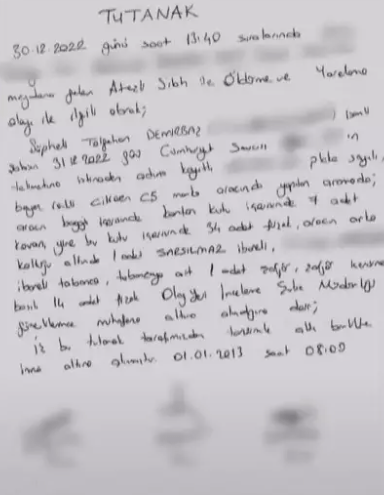 TUTANAK
30.12.2022 günü saat 13:40 sıralarında
meydana gelen Ateşli Silah ile Öldürme ve Yaralama
olayı ile ilgili olarak;
Şüpheli Tolgahan DEMİRBAŞ isimli
şahsın 31.12.2022 günü Cumhuriyet Savcısı 'ın
talimatına istinaden adına kayıtlı plaka sayılı,
beyaz renkli Citroen C5 marka aracında yapılan aramada;
aracın bagaj kısmında karton kutu içerisinde 7 adet
kovan, yine bu kutu içerisinde 34 adet fişek, aracın arka
koltuğu altında 1 adet SARSILMAZ ibareli,
ibareli tabanca, tabancaya ait 1 adet şarjör, şarjör
basılı 14 adet fişek Olay Yeri İnceleme Şube Müdürlüğü
muhafaza altına alındığına dair;
İş bu tutanak tarafımızdan tanzimle birlikte
imza altına alınmıştır. 01.01.2013 saat 08:00